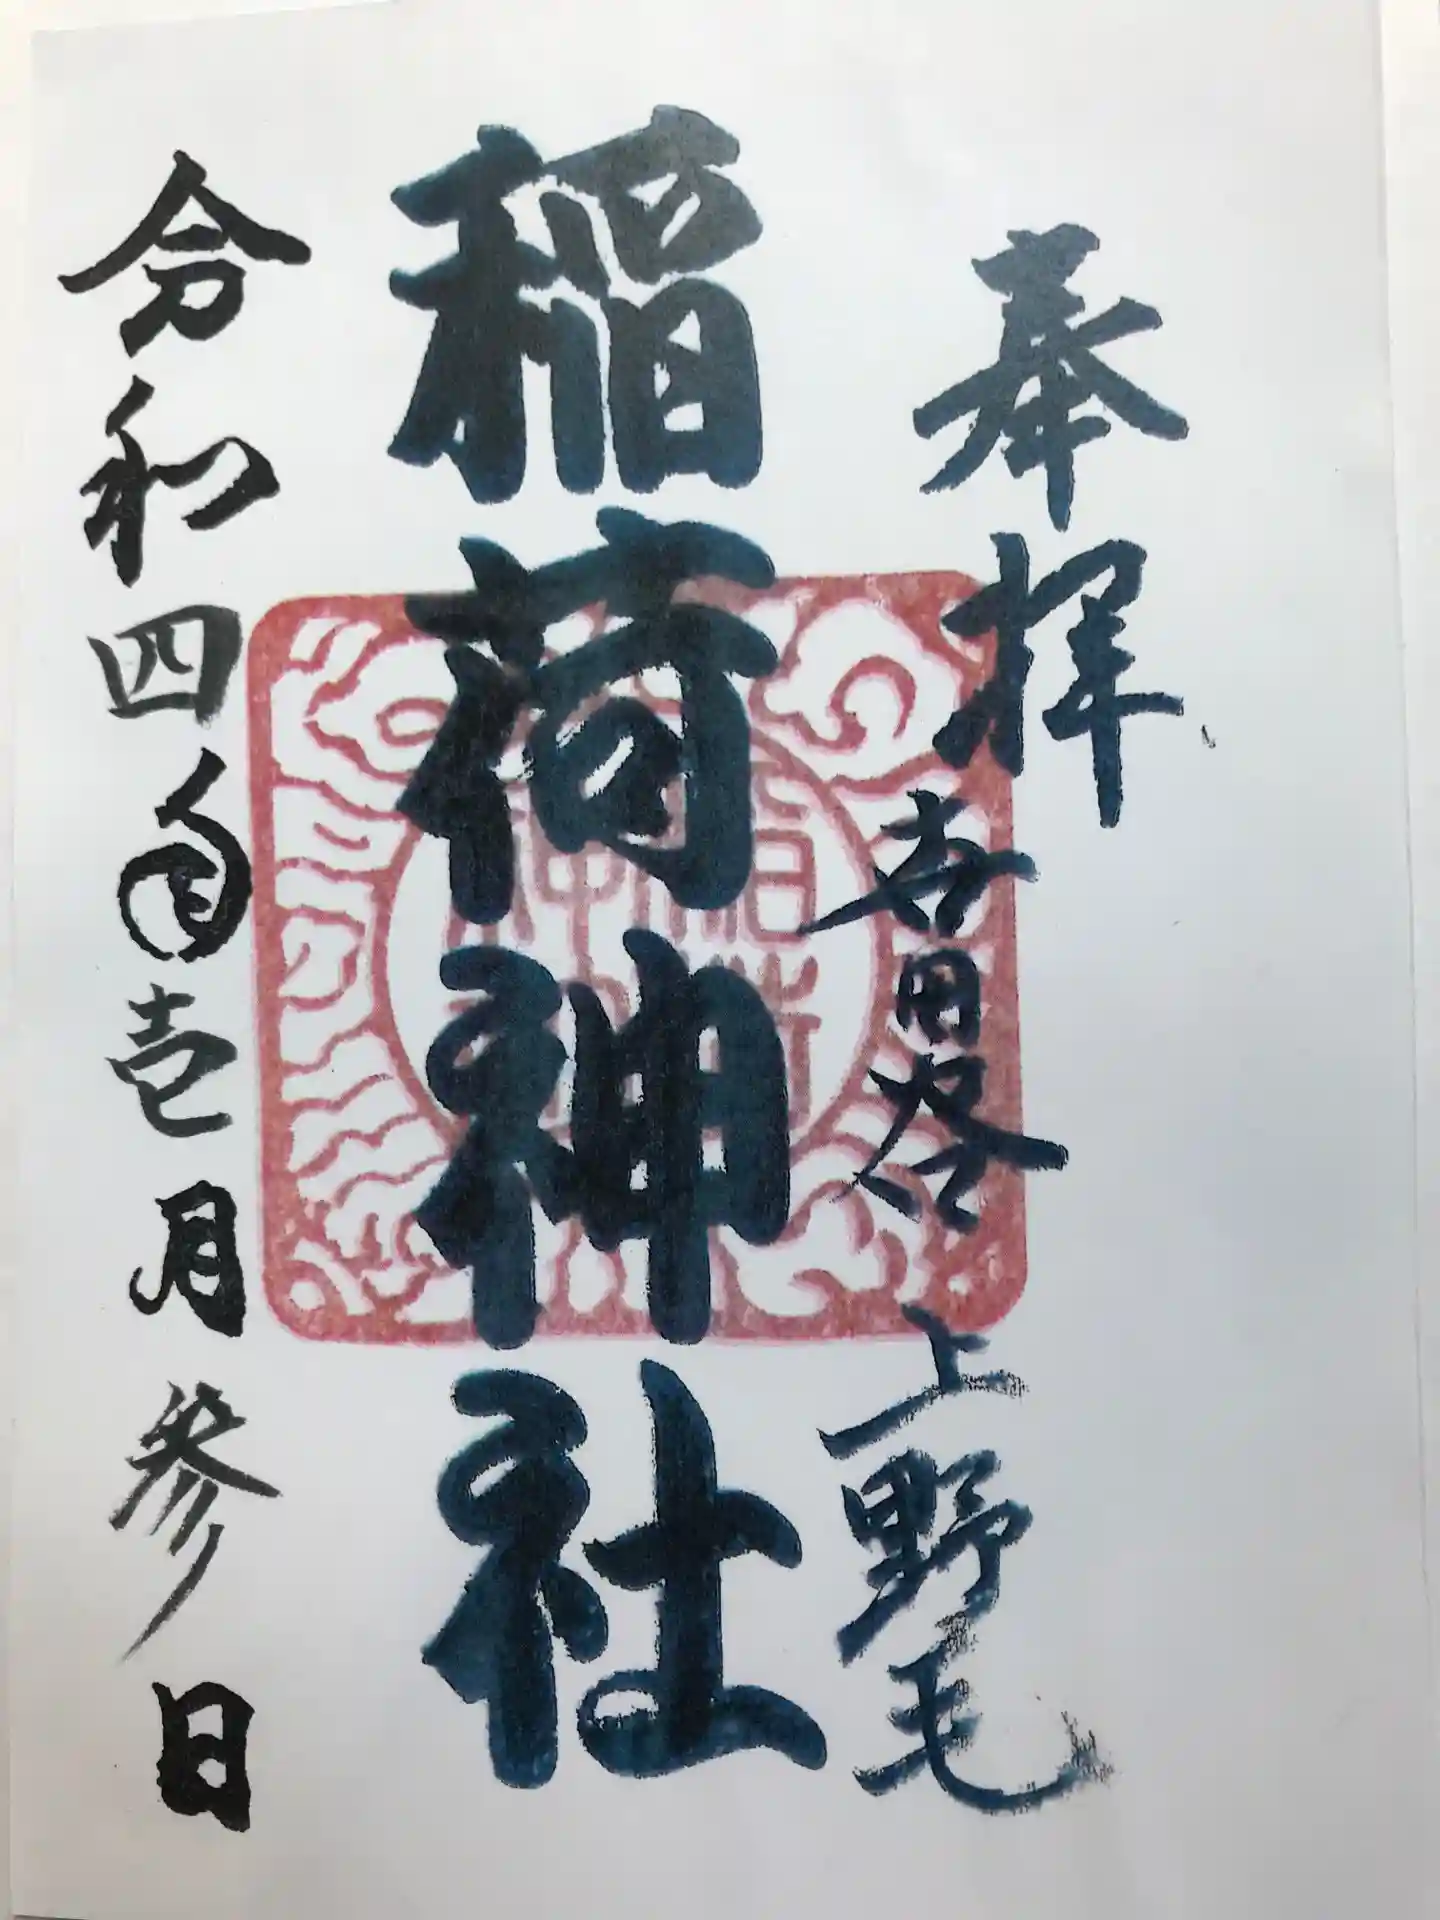 奉拝
吉田谷
上野毛
稲荷神社
令和四年壱月参日